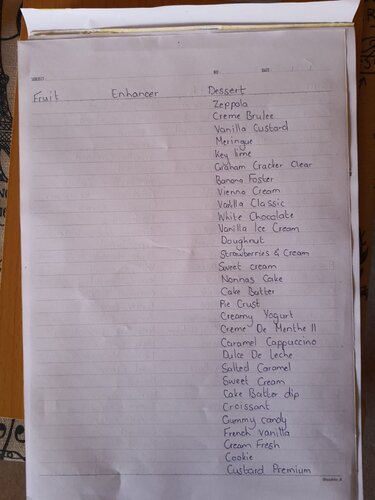 SUBJECT NO DATE
Fruit Enhancer Dessert
Zeppola
Creme Brulee
Vanilla Custard
Meringue
Key lime
Graham Cracker Clear
Banana Foster
Vienna Cream
Vanilla Classic
White Chocolate
Vanilla Ice Cream
Doughnut
Strawberries & Cream
Sweet cream
Nonnas Cake
Cake Batter
Pie Crust
Creamy Yogurt
Creme De Menthe II
Caramel Cappuccino
Dulce De Leche
Salted Caramel
Sweet Cream
Cake Batter dip
Croissant
Gummy candy
French vanilla
Cream Fresh
Cookie
Custard Premium